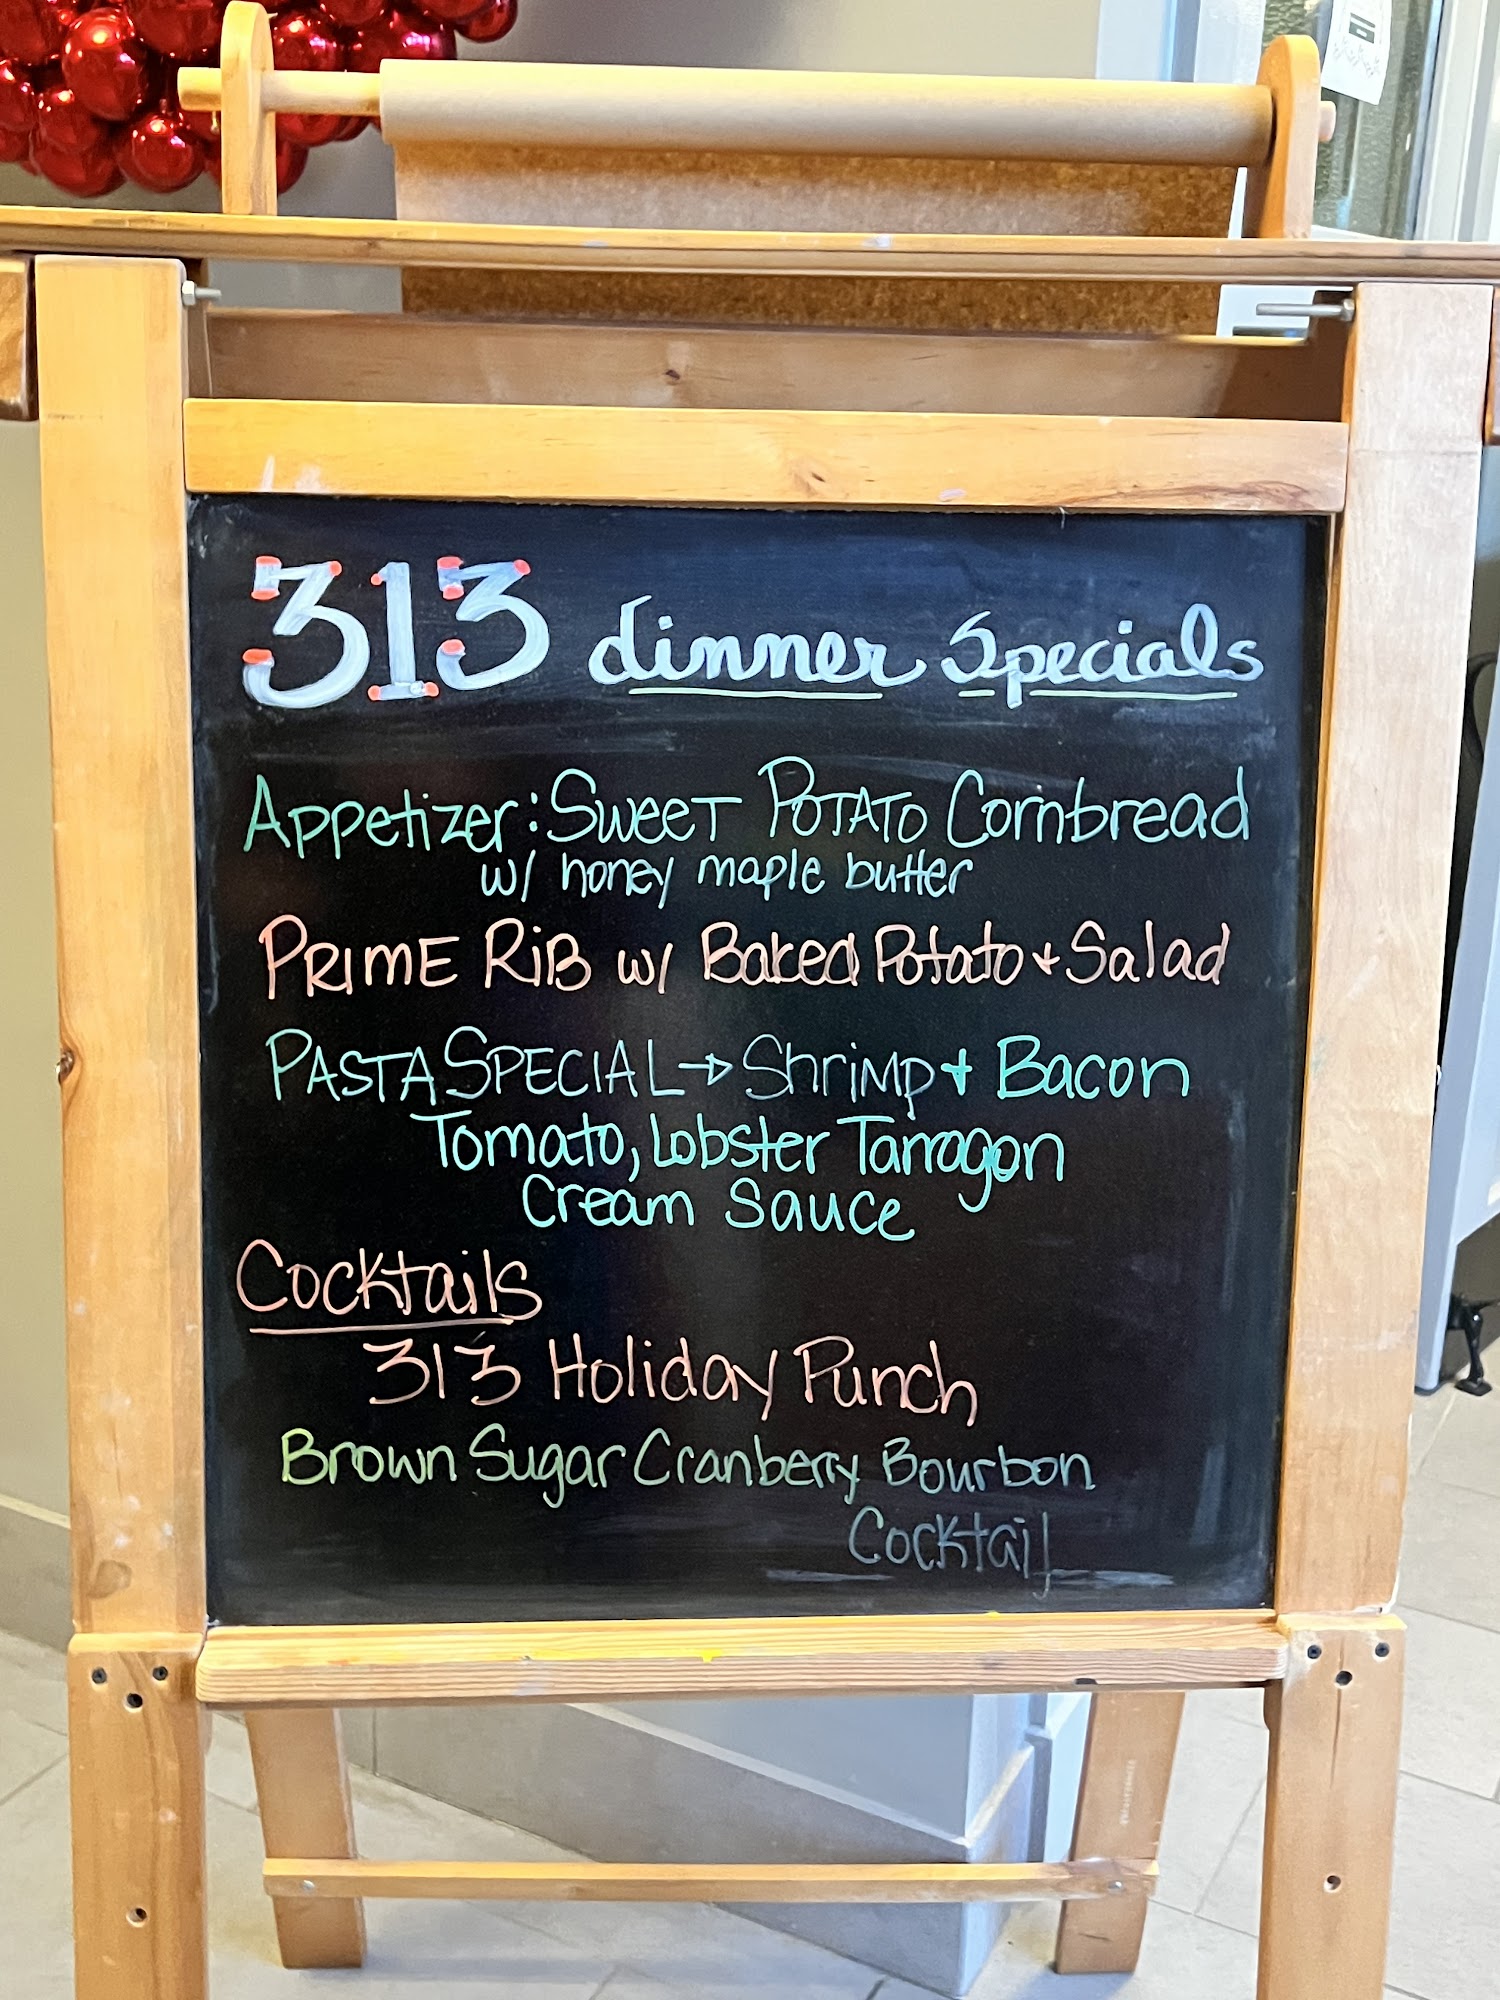 313 dinner Specials
Appetizer: Sweet Potato Cornbread
w/ honey maple butter
Prime Rib w/ Baked Potato + Salad
Pasta Special → Shrimp + Bacon
Tomato, Lobster Tarragon
Cream Sauce
Cocktails
313 Holiday Punch
Brown Sugar Cranberry Bourbon
Cocktail